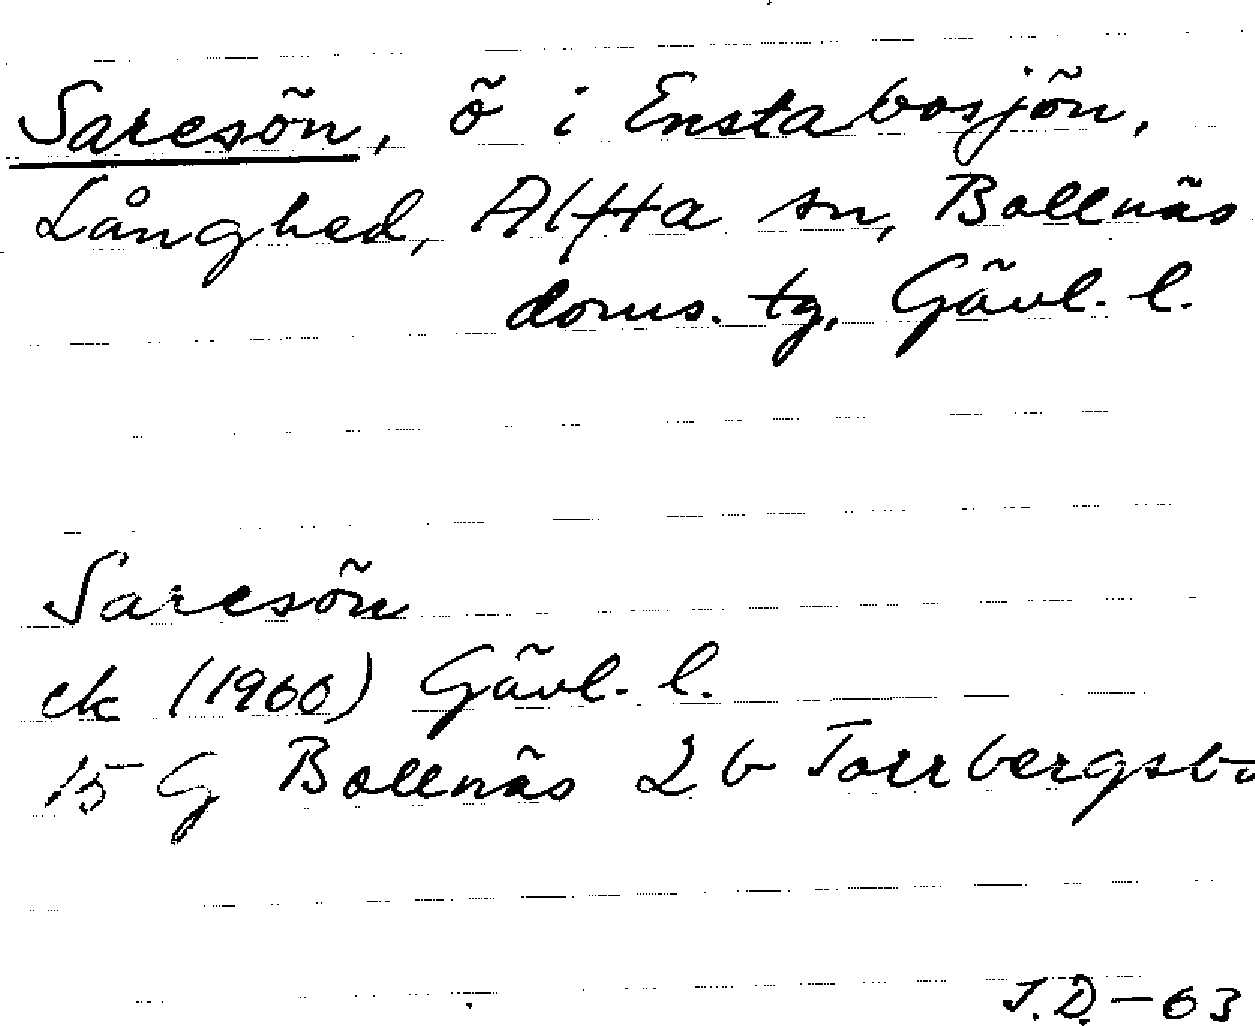 Saresön, ö i Enstabosjön,
Långhed, Alfta sn, Bollnäs
doms. tg, Gävl. l.
Saresön
ek (1960) Gävl. l.
15 G Bollnäs 2 b Torrbergsbo
J.D.-63